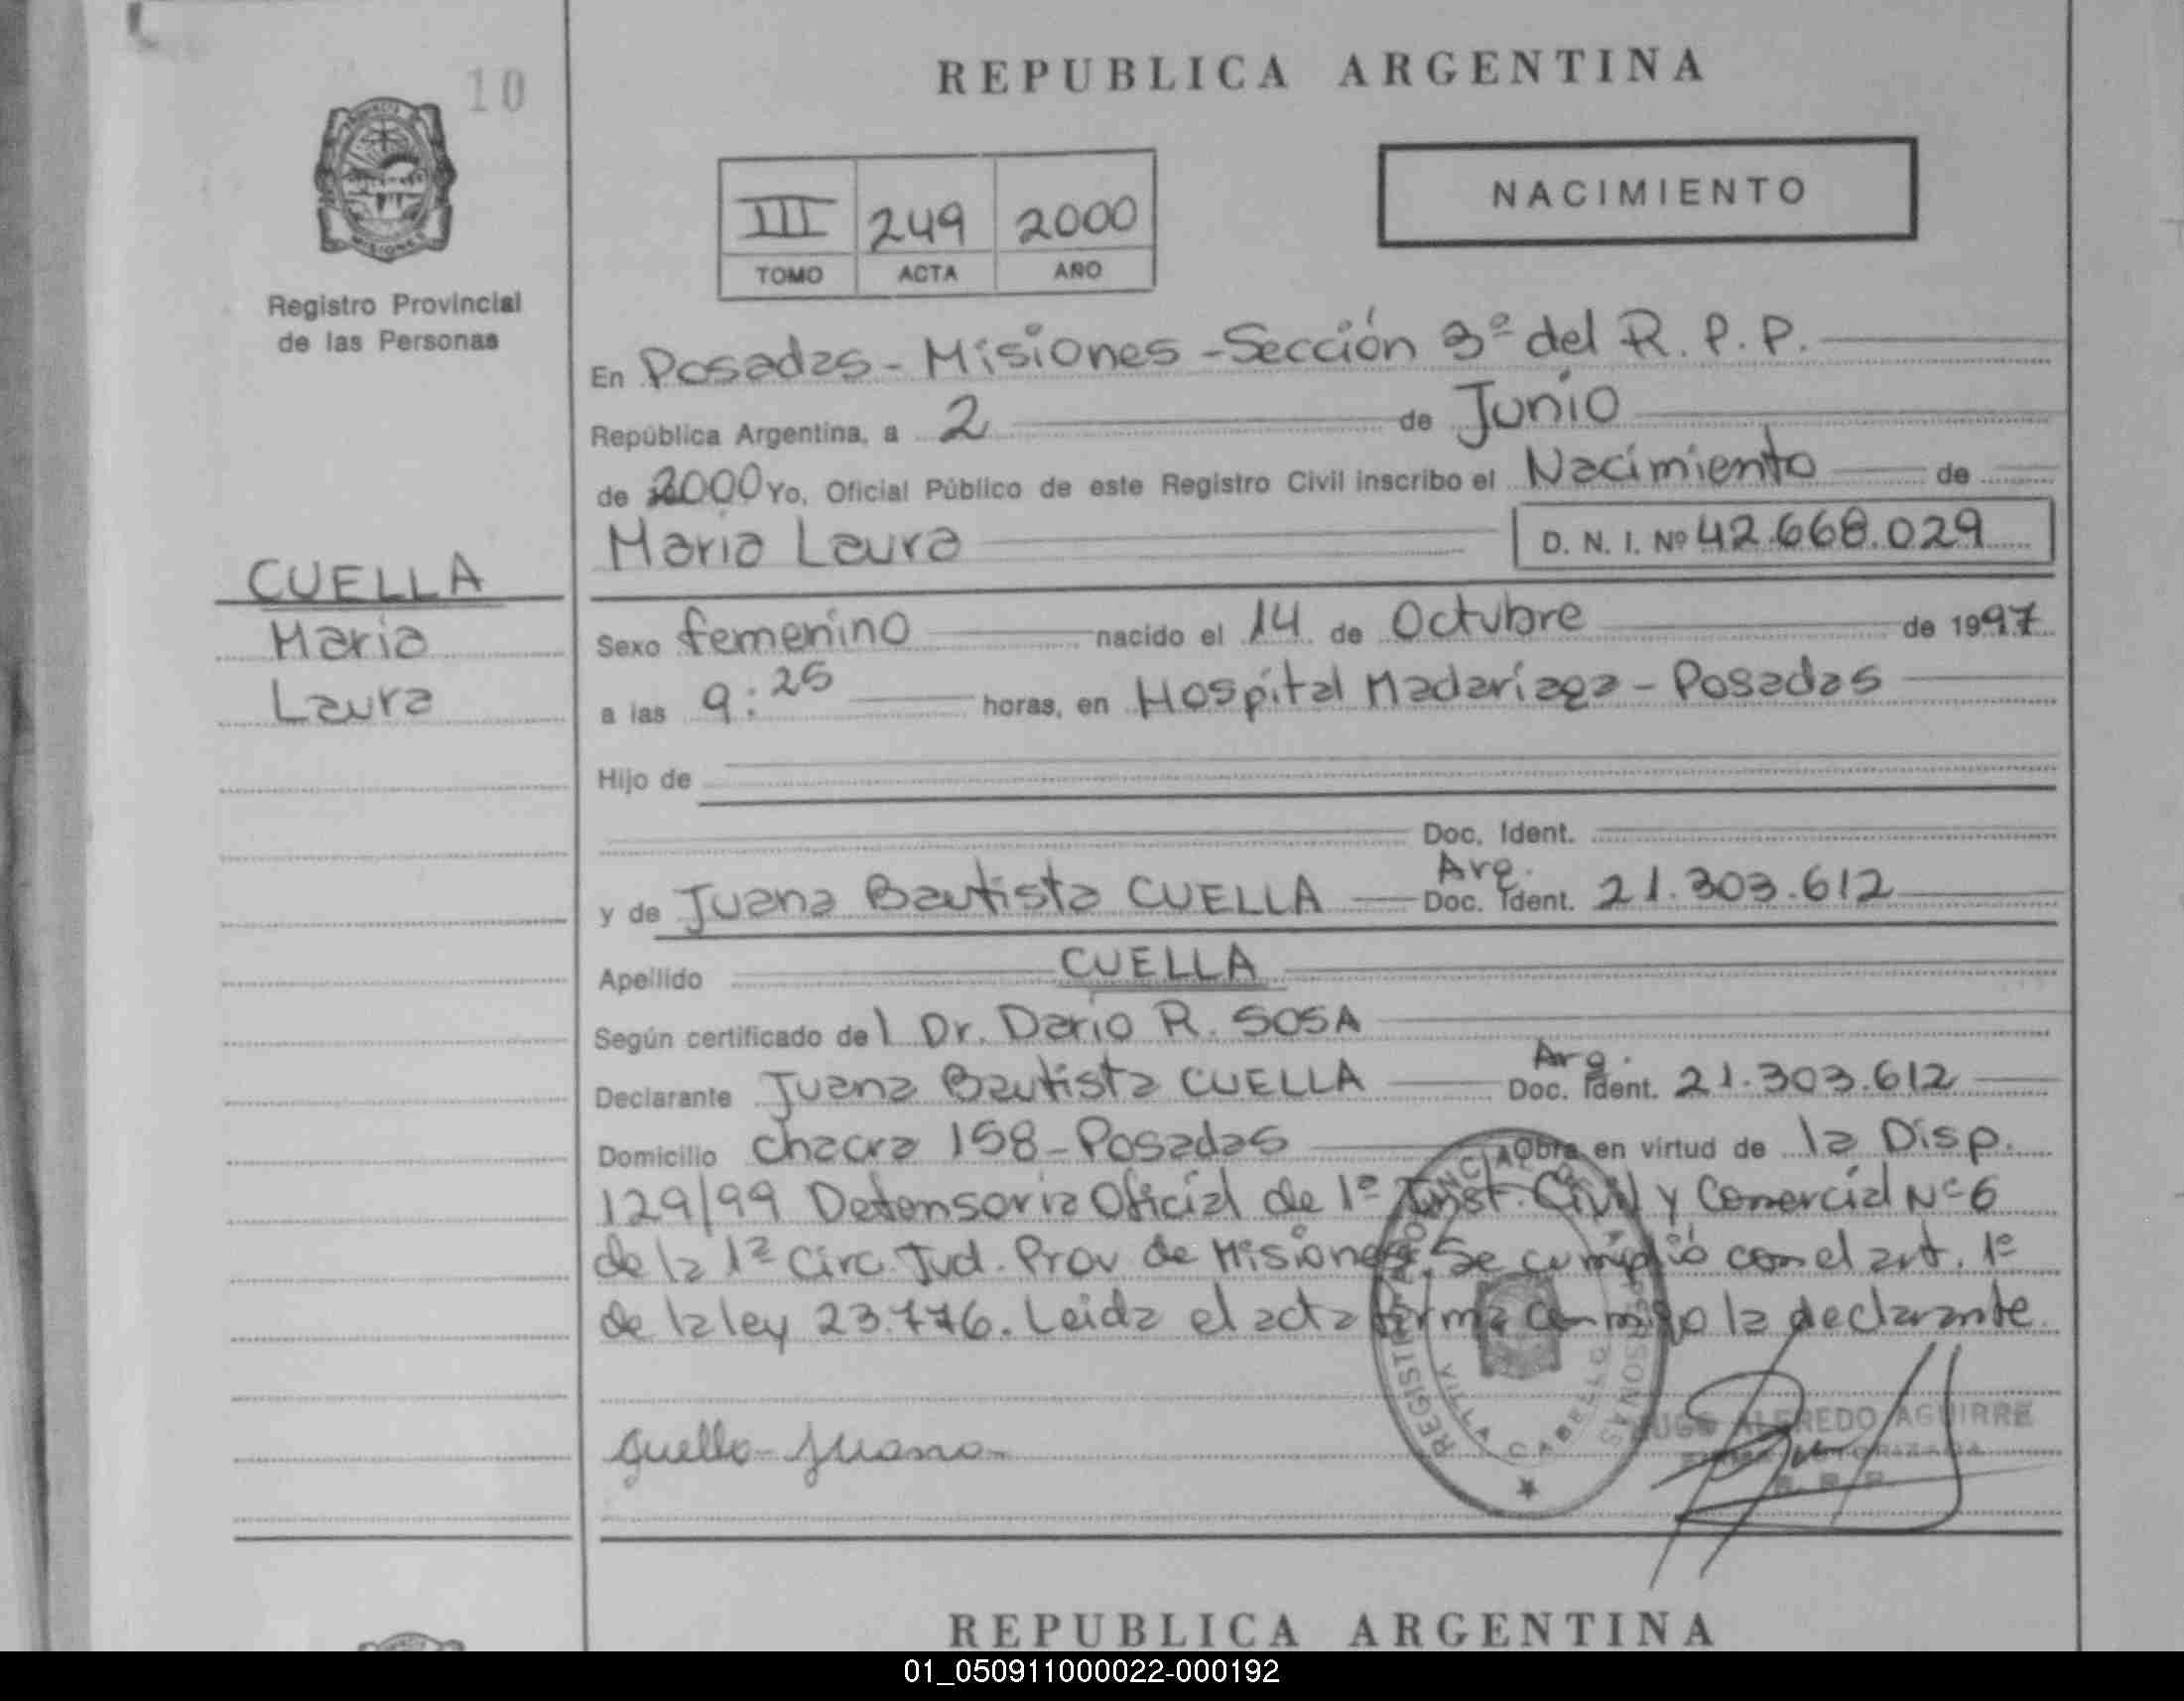 10
REPUBLICA ARGENTINA
NACIMIENTO
III 249 2000
TOMO ACTA AÑO
Registro Provincial
de las Personas
En Posadas - Misiones - Sección 3º del R. P. P.
República Argentina, a 2 de Junio
de 2000 Yo, Oficial Público de este Registro Civil inscribo el Nacimiento de
Maria Laura D. N. I. Nº 42.668.029
CUELLA
Maria
Laura
Sexo femenino nacido el 14 de Octubre de 1997
a las 9:25 horas, en Hospital Madariaga - Posadas
Hijo de
Doc. Ident.
y de Juana Bautista CUELLA Arg. Doc. Ident. 21.303.612
Apellido CUELLA
Según certificado del Dr. Dario R. SOSA
Declarante Juana Bautista CUELLA Arg. Doc. Ident. 21.303.612
Domicilio Chacra 158 - Posadas Obra en virtud de la Disp.
129/99 Defensoria Oficial de 1º Inst. Civil y Comercial Nº 6
de la 1ª Circ. Jud. Prov de Misiones. Se cumplió con el art. 1º
de la ley 23.776. Leida el acta firma conmigo la declarante
Cuella Juana
REGISTRO PROVINCIAL DE LAS PERSONAS
VILLA CABELLO
HUGO ALFREDO AGUIRRE
REPUBLICA ARGENTINA
01_050911000022-000192